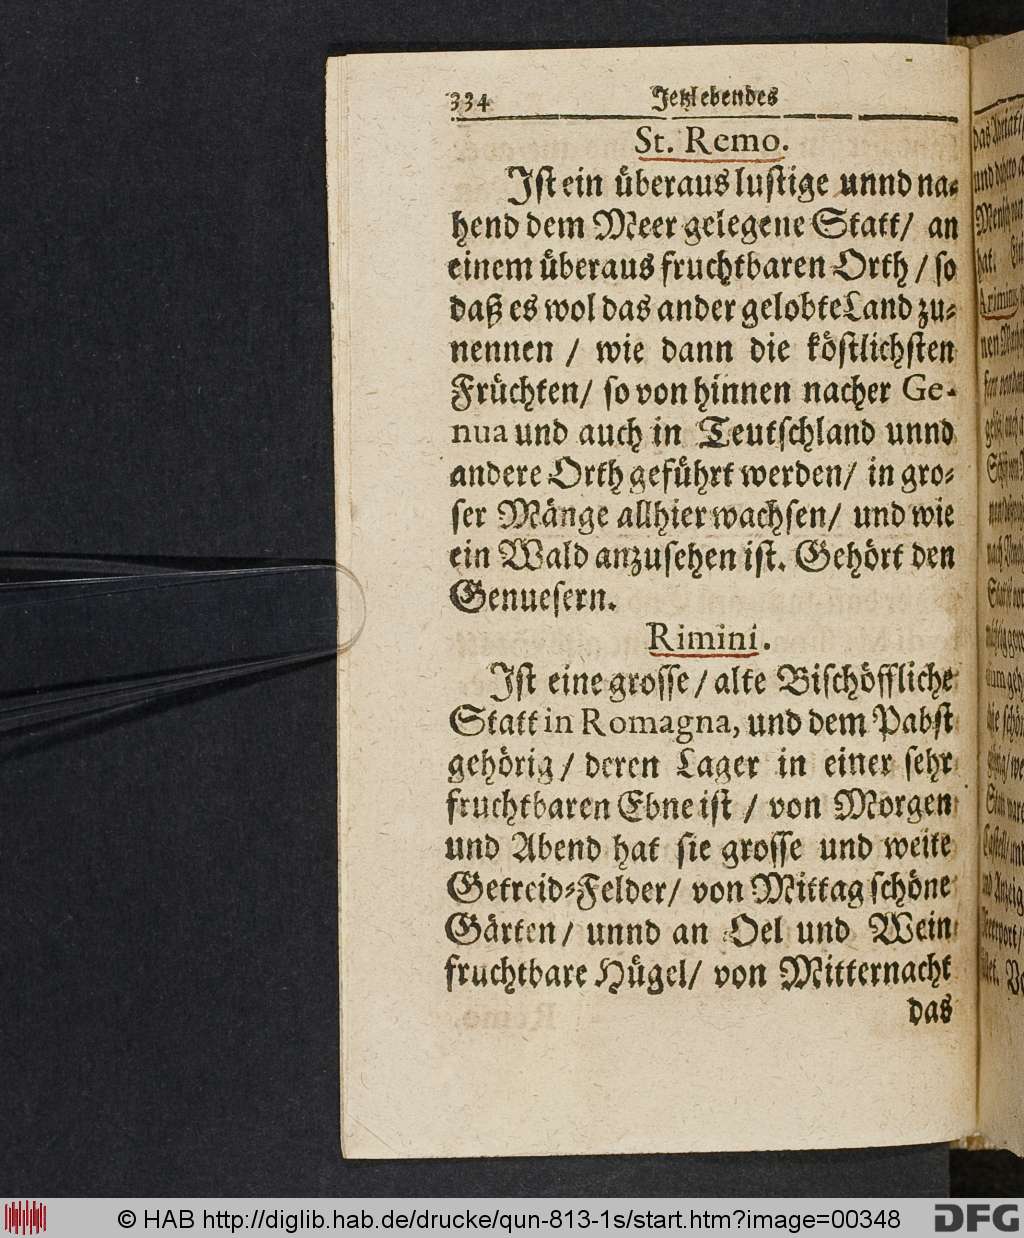 334 Jetzlebendes
St. Remo.
Jst ein überaus lustige unnd na-
hend dem Meer gelegene Statt/ an
einem überaus fruchtbaren Orth / so
daß es wol das ander gelobte Land zu-
nennen / wie dann die köstlichsten
Früchten/ so von hinnen nacher Ge-
nua und auch in Teutschland unnd
andere Orth geführt werden/ in gro-
ser Mänge allhier wachsen/ und wie
ein Wald anzusehen ist. Gehört den
Genuesern.
Rimini.
Jst eine grosse / alte Bischöffliche
Statt in Romagna, und dem Pabst
gehörig / deren Lager in einer sehr
fruchtbaren Ebne ist / von Morgen
und Abend hat sie grosse und weite
Getreid-Felder/ von Mittag schöne
Gärten/ unnd an Oel und Wein
fruchtbare Hügel/ von Mitternacht
das
© HAB http://diglib.hab.de/drucke/qun-813-1s/start.htm?image=00348
DFG